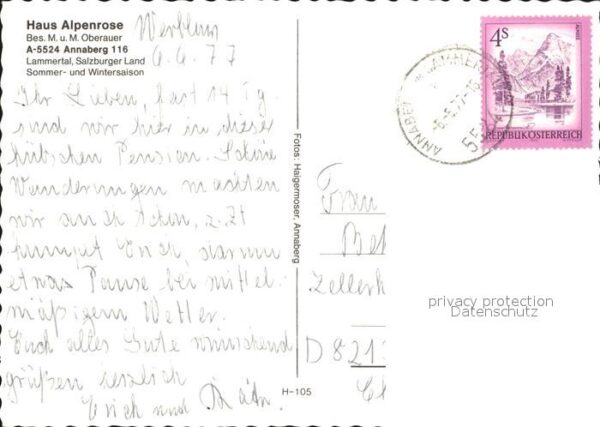 Haus Alpenrose
Bes. M. u. M. Oberauer
A-5524 Annaberg 116
Lammertal, Salzburger Land
Sommer- und Wintersaison
6.6.77
Ihr Lieben, fast 14 Tg.
sind wir hier in dieser
hübschen Pension. Schöne
Wanderungen machten
wir auch schon, z. Zt
humpet Erich, darum
etwas Pause bei mittel-
mäßigem Wetter.
Euch alles Gute wünschend
grüßen herzlich
Erich und Käth.
Fotos: Haigermoser, Annaberg
H-105
4S
REPUBLIK ÖSTERREICH
ALMSEE
ANNABERG
5524
Frau
Zellerh
D 821
privacy protection
Datenschutz